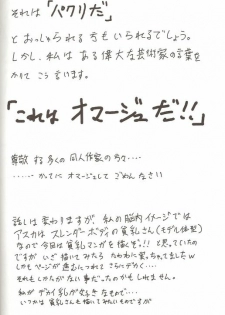 それは「パクリだ」
とおっしゃられる方もいられるでしょう。
しかし、私はある偉大な芸術家の言葉を
かりてこう言います。
「これはオマージュだ!!」
尊敬する多くの同人作家の方々‥‥
‥‥‥かってにオマージュしてごめんなさい
話しは変わりますが、私の脳内イメージでは
アスカはスレンダーボディの貧乳さん(モデル体型)
なので今回は貧乳マンガを描くぞ!!と思っていたの
ですがいざ描いてみたらたわわに実っちゃてましたw
しかもページが進むにつれてさらにデカく‥‥
それもしかたがない事だったのかもしれません。
私がデカイ乳が好きなもので‥‥
いつかは貧乳さんも描いてみたいものですが